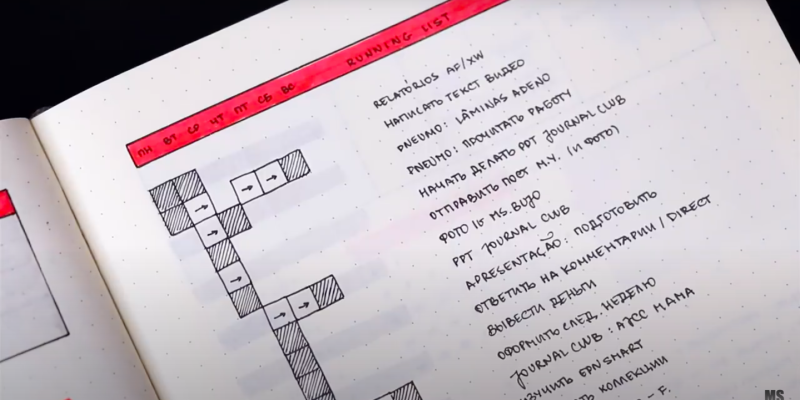 ПН ВТ СР ЧТ ПТ СБ ВС RUNNING LIST
RELATÓRIOS AF/XW
НАПИСАТЬ ТЕКСТ ВИДЕО
PNEUMO: LÂMINAS ADENO
PNEUMO: ПРОЧИТАТЬ РАБОТУ
НАЧАТЬ ДЕЛАТЬ PPT JOURNAL CLUB
ОТПРАВИТЬ ПОСТ М.У. (И ФОТО)
ФОТО IG MS.BUJO
PPT JOURNAL CLUB
APRESENTAÇÃO: ПОДГОТОВИТЬ
ОТВЕТИТЬ НА КОММЕНТАРИИ / DIRECT
ВЫВЕСТИ ДЕНЬГИ
ОФОРМИТЬ СЛЕД. НЕДЕЛЮ
JOURNAL CLUB: AJCC МАМА
ИЗУЧИТЬ EPNSMART
КОЛЛЕКЦИИ
- F.
MS